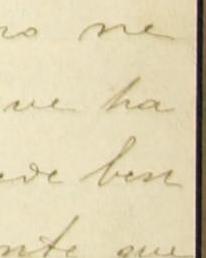 ro ne
ve ha
ede ben
nte que